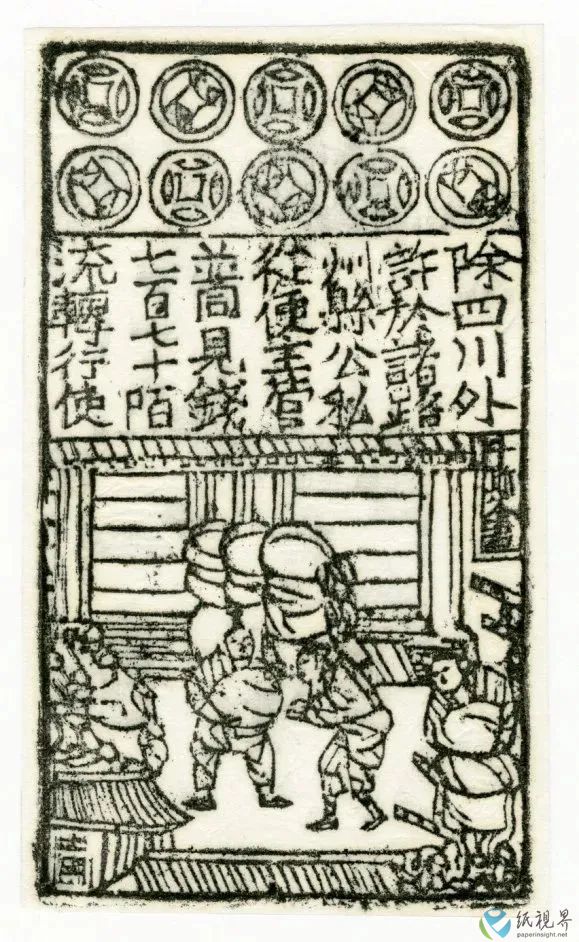 除四川外
許於諸路
州縣公私
從便主管
並同見錢
七百七十陌
流轉行使
纸视界
paperinsight.net